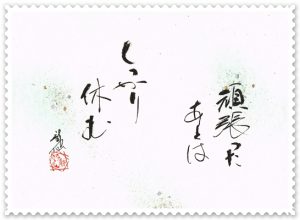 頑張った
あとは
しっかり
休む